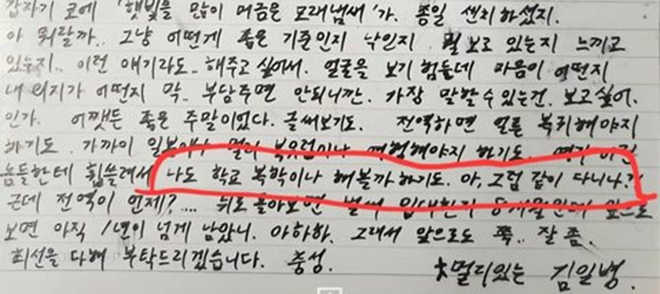 갑자기 코에 '햇빛을 많이 머금은 모래냄새'가. 종일 센치하셨지.
아 뭐랄까.. 그냥 어떤게 좋은 기준인지 낙인지 뭘 보고 있는지 느끼고
있는지.. 이런 얘기라도.. 해주고 싶어서. 얼굴을 보기 힘든데 마음이 어떤지
내 의지가 어떤지 막.. 부담주면 안되니깐. 가장 말할수 있는건. 보고싶어.
인가. 어쨌든 좋은 주말이었다. 글써보기도. 전역하면 얼른 복귀해야지
하기도. 가까이 일본이나 멀리 북유럽이나 여행해야지 하기도.
놈들한테 휩쓸려서 나도 학교 복학이나 해볼까하기도. 아, 그럼 같이 다니나?
근데 전역이 언제?.... 뒤로 돌아보면 벌써 입대한지 앞으로
보면 아직 1년이 넘게 남았니. 아하하. 그래서 앞으로도 쭉.. 잘 좀.
최선을 다해 부탁드리겠습니다. 충성.
멀리있는 김일병.